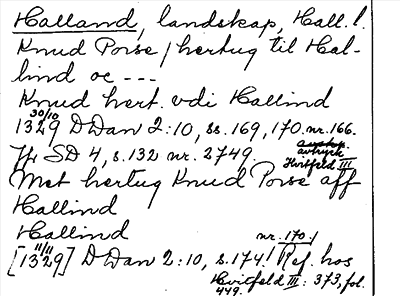 Halland, landskap, Hall. l.
Knud Porse / hertug til Hal-
lind oc ---
Knud hert. vdi Hallind
30/10
1329 DDan 2:10, ss. 169, 170. nr. 166.
avtryck
Jfr SD 4, s. 132 nr. 2749. Hvitfeld III
Met hertug Knud Porse aff
Hallind
Hallind
nr. 170./
11/11
[1329] DDan 2:10, s. 174/ Ref. hos
Hvitfeld III: 373, fol.
449.